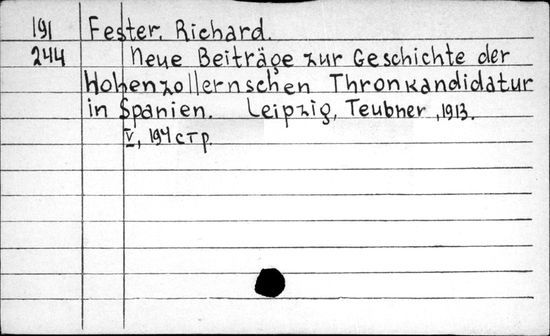 191 Fester, Richard.
244 Neue Beiträge zur Geschichte der
Hohenzollernschen Thronkandidatur
in Spanien. Leipzig, Teubner, 1913.
V, 194 стр.